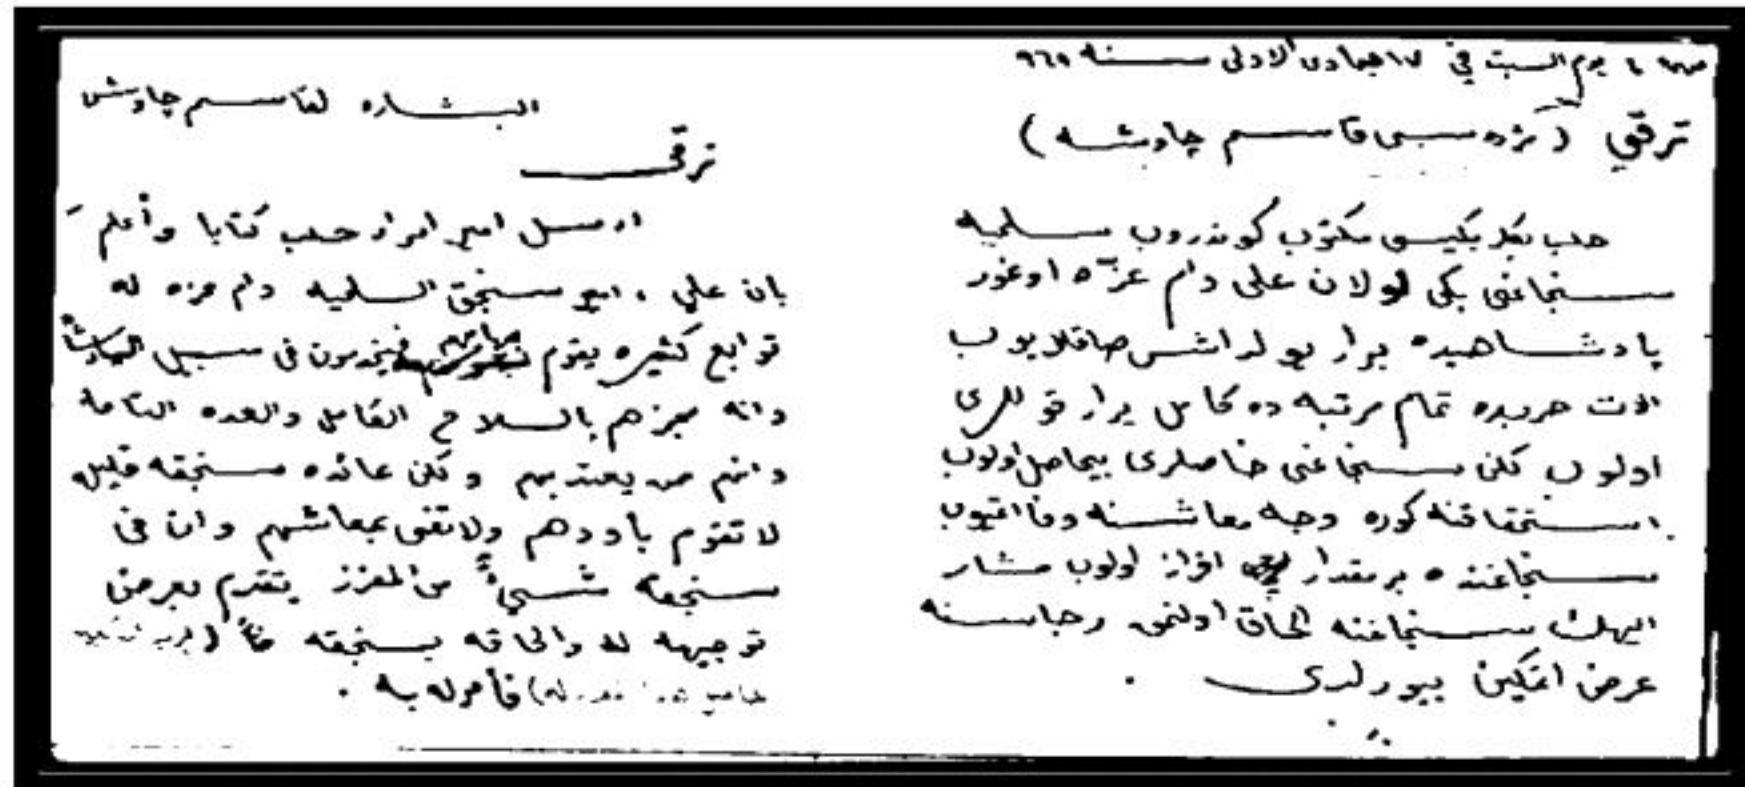 يوم السبت في ١٧ جمادى الاولى سنه ٩٦٧
ترقي ( مژده سى قاسم چاوشه )
حلب بكلربكيسى مكتوب كوندروب سلميه
سنجاغى بكى اولان على دام عزه اوغور
پادشاهيده يرار يولداشلر صاقلايوب
الات حربده تمام مرتبه ده كامل يرار قوللرى
اولوب لكن سنجاغى خاصلرى بيحاصل اولوب
استحقاقنه كوره وجه معاشنه وفا اتميوب
سنجاغنده بر مقدار افراز اولوب مشار
اليهك سنجاغنه الحاق اولنمق رجاسنه
عرض اتمكين بيورلدى .
البشاره لقاسم چاوش
ترقى
ارسل امير امراء حلب كتابا وأعلم
بان علي امير سنجق السلميه دام عزه له
توابع كثيره يقوم فيخدمون في سبيل
وانه مجهزهم بالسلاح الكامل والعده التامة
وانهم من يعتد بهم ولكن عائده سنجقه قليله
لا تقوم بأودهم ولا تفي بمعاشهم وان في
سنجقه شيءٌ من المفرز يتقدم بعرض
توجيهه له والحاقه بسنجقه
فأمر له به .